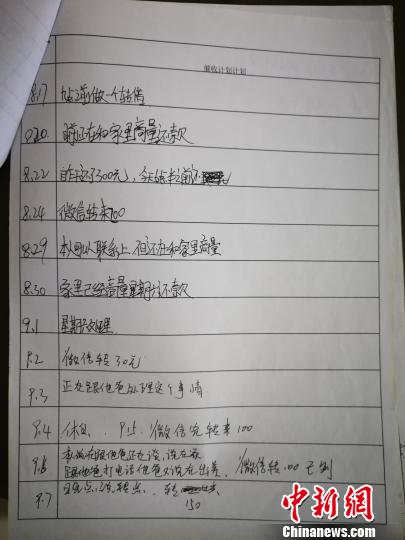 催收计划计划
8.17 做一个转借
8.20 目前还在和家里商量还款
8.22 昨还了300元,今天结束之前还
8.24 微信转来100
8.29 本人可以联系上,但还在和家里商量
8.30 家里已经商量星期六还款
9.1 星期天处理
9.2 微信转30元
9.3 正在跟他爸处理这个事情
9.4 休息. P.15 微信完转来100
9.6 本人说在跟他爸还在谈,说在
跟他爸打电话他爸又说在出差. 微信转100已到
9.7 点 转 150
中新网
www.chinanews.com